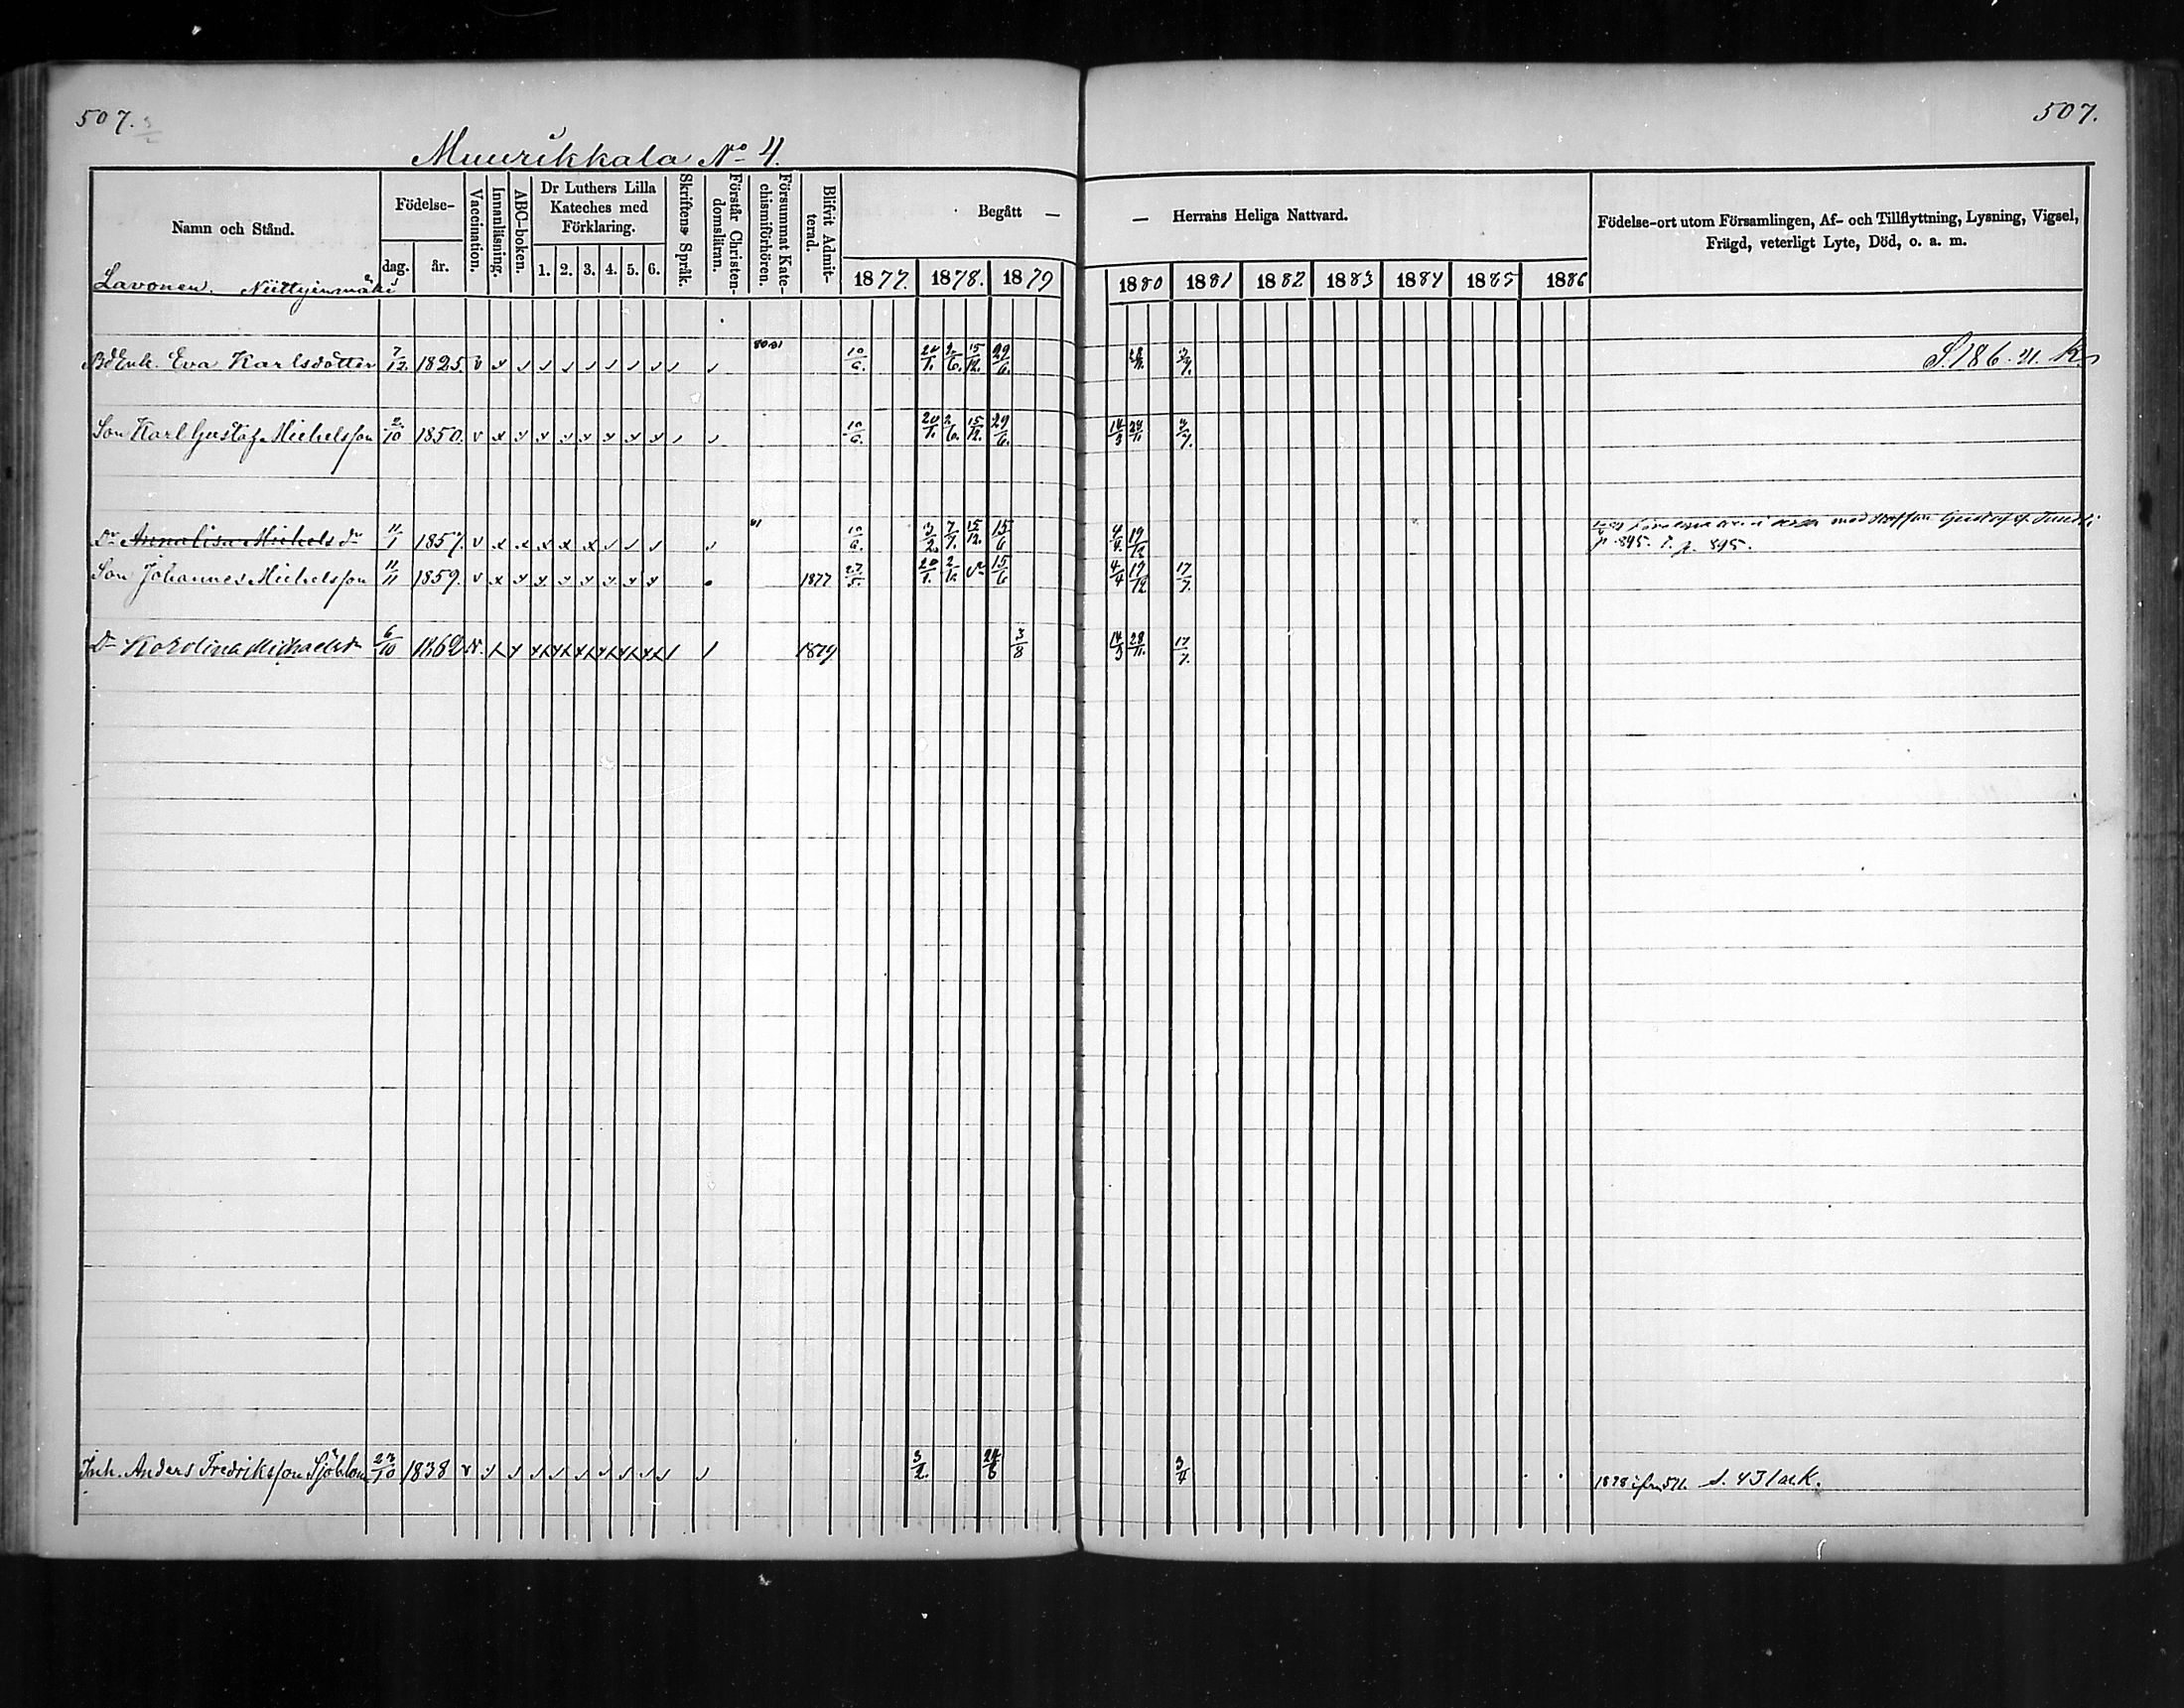 507.
507.
Muurikkala No 4.
Namn och Stånd.
Födelse-
dag.
år.
Vaccination.
Innanläsning.
ABC-boken.
Dr Luthers Lilla
Kateches med
Förklaring.
1. 2. 3. 4. 5. 6.
Skriftens Språk.
Förstår Christen-
domsläran.
Försummat Kate-
chismiförhören.
Blifvit Admit-
terad.
Begått —
— Herrans Heliga Nattvard.
1877. 1878. 1879
1880 1881 1882 1883 1884 1885 1886
Födelse-ort utom Församlingen, Af- och Tillflyttning, Lysning, Vigsel,
Frägd, veterligt Lyte, Död, o. a. m.
Lavonen. Niittyinmäki
Enk. Eva Karlsdotter 7/12 1825. v 10/6. 2/6. 15/12. 29/6. S. 186
Son Karl Gustaf Michelsson 2/10 1850. v 10/6. 2/6. 15/12. 29/6. 14/3
Dr Annalisa Michelsdr 11/1 1857. v 10/6. 3/2. 7/7. 15/12. 15/6 4/4. 19/12 med Gustaf
p. 895. p. 895.
Son Johannes Michelsson 11/11 1859. v 1877 27/5. 20/1. 2/6. 15/6 4/4 19/12 17/7.
Dr Karolina Michaelsdr 6/10 1862 1879 3/8 14/3 28/11. 17/7.
Inh. Anders Fredriksson Sjöblom 1838 v 3/2. 24/6 3/4 1878 ifrn 511. S. 431 a.K.